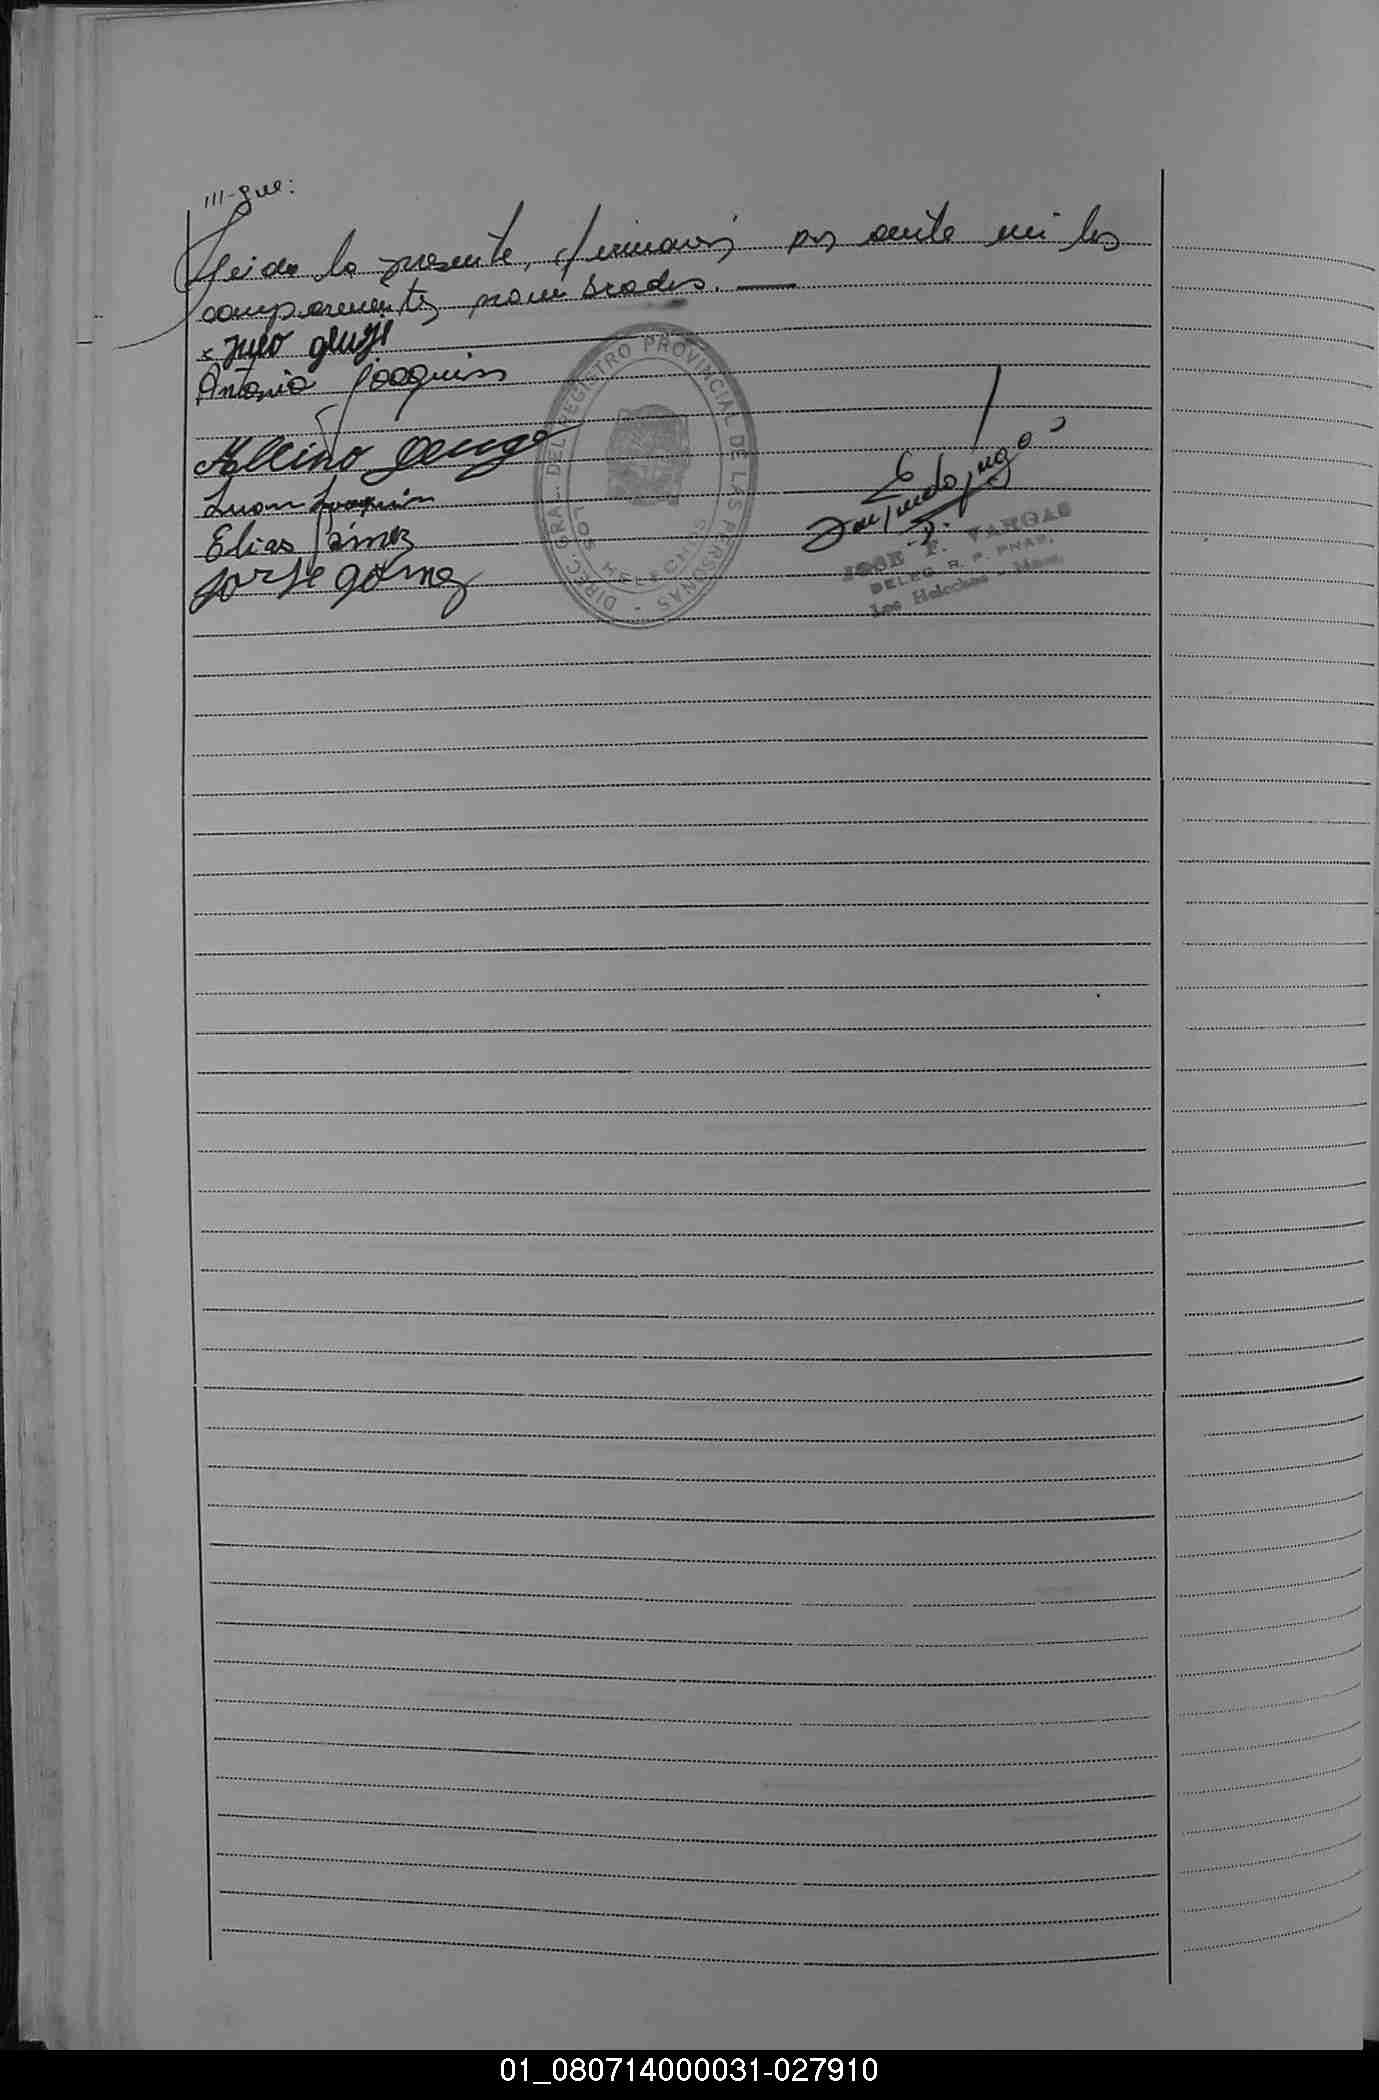 ///-gue:
Leida la presente, firman por ante mi los
comparecientes nombrados. —
Antonio Joaquin
Juan Joaquin
Elias Gimez
Jorge Gomez
DIREC. GRAL. DEL REGISTRO PROVINCIAL DE LAS PERSONAS
LOS HELECHOS
JOSE F. VARGAS
DELEG. R. P. PNAS.
Los Helechos - Mnes.
01_080714000031-027910